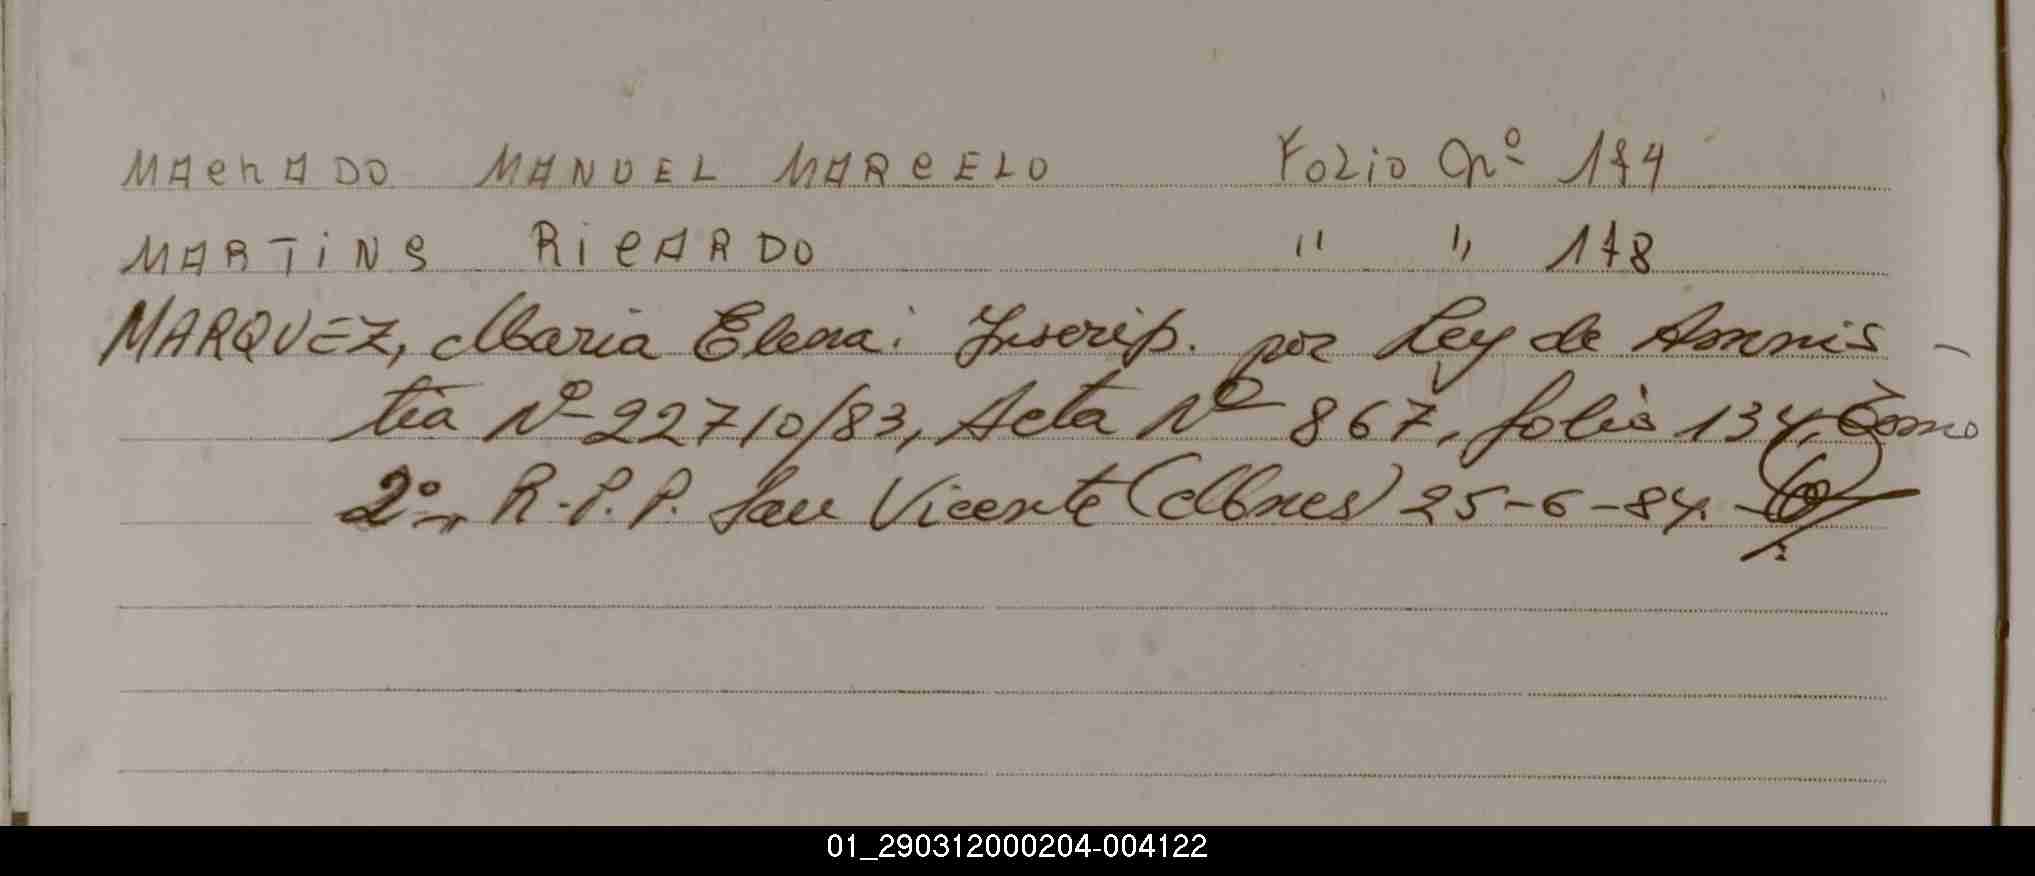 MACHADO MANUEL MARCELO Folio Nº 174
MARTINS RICARDO " " 178
MARQUEZ, Maria Elena: Inscrip. por Ley de Amnis-
tia Nº 22710/83, Acta Nº 867, folio 134, Tomo
2º, R.P.P. San Vicente (Mnes) 25-6-84.
01_290312000204-004122